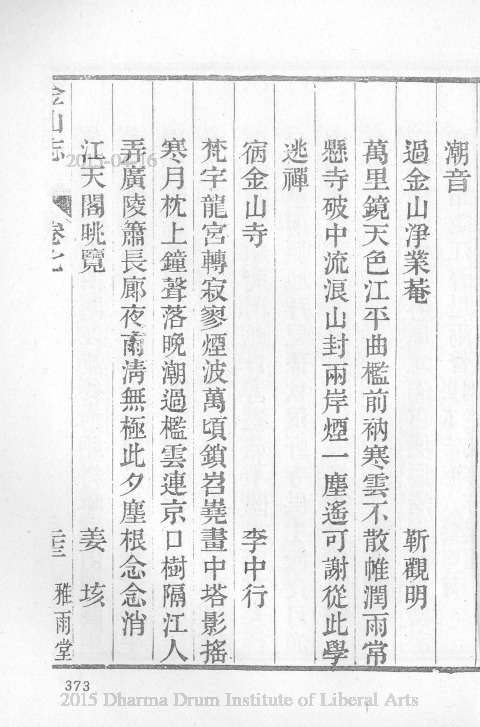 潮音
過金山淨業菴　靳觀明
萬里鏡天色江平曲檻前衲寒雲不散帷潤雨常
懸寺破中流浪山封兩岸煙一塵遙可謝從此學
逃禪
宿金山寺　李中行
梵宇龍宮轉寂寥煙波萬頃鎖岧嶤畫中塔影搖
寒月枕上鐘聲落晚潮過檻雲連京口樹隔江人
弄廣陵簫長廊夜雨清無極此夕塵根念念消
江天閣眺覽　姜垓
金山志　卷七　雅雨堂
373
2015 Dharma Drum Institute of Liberal Arts